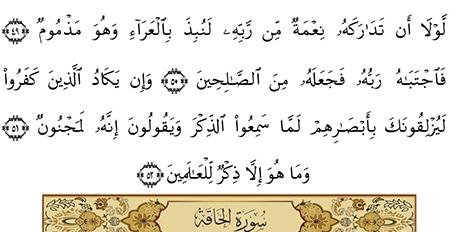 لَّوْلَا أَن تَدَارَكَهُۥ نِعْمَةٌ مِّن رَّبِّهِۦ لَنُبِذَ بِالْعَرَآءِ وَهُوَ مَذْمُومٌ ﴿٤٩﴾
فَاجْتَبَاهُ رَبُّهُۥ فَجَعَلَهُۥ مِنَ الصَّالِحِينَ ﴿٥٠﴾ وَإِن يَكَادُ الَّذِينَ كَفَرُوا۟
لَيُزْلِقُونَكَ بِأَبْصَارِهِمْ لَمَّا سَمِعُوا۟ الذِّكْرَ وَيَقُولُونَ إِنَّهُۥ لَمَجْنُونٌ ﴿٥١﴾
وَمَا هُوَ إِلَّا ذِكْرٌ لِّلْعَالَمِينَ ﴿٥٢﴾
سُورَةُ الحَاقَّةِ